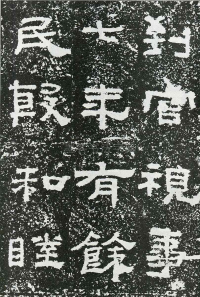 到官視事
七年有餘
民殷和睦